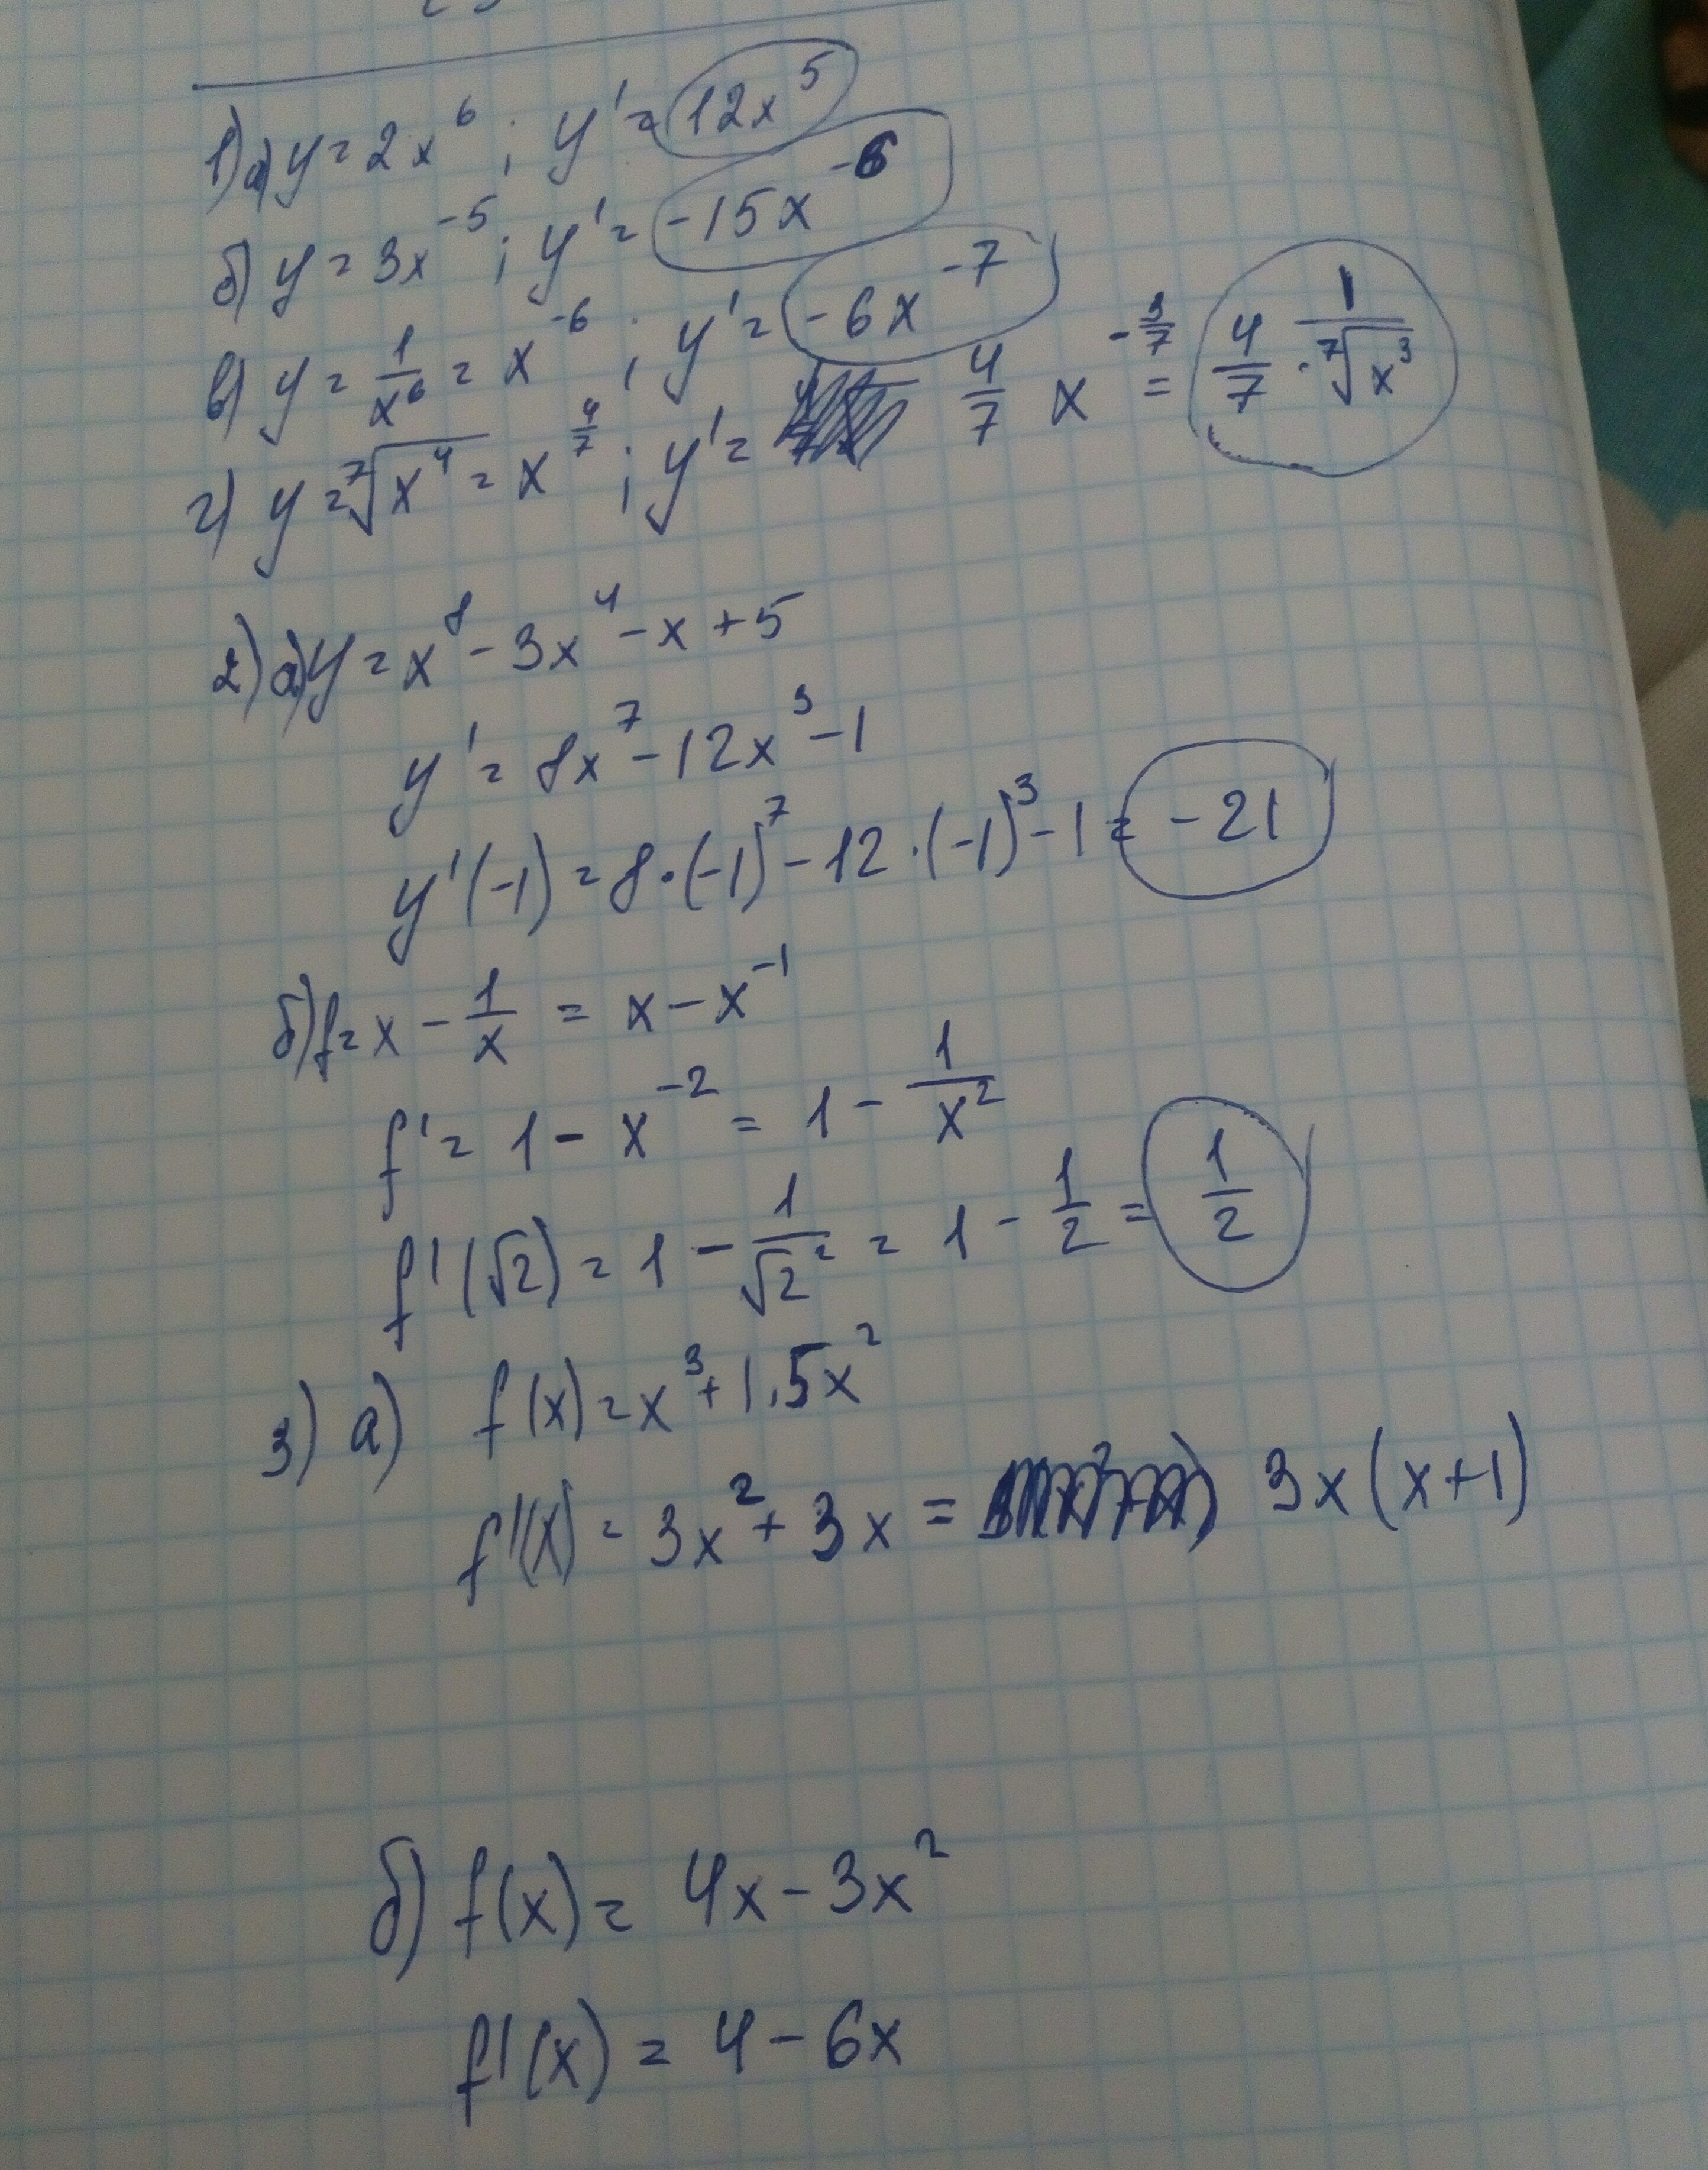 1) а) y = 2x⁶ ; y' = 12x⁵
б) y = 3x⁻⁵ ; y' = -15x⁻⁶
в) y = 1/x⁶ = x⁻⁶ ; y' = -6x⁻⁷
г) y = ⁷√x⁴ = x^(4/7) ; y' = 4/7 x^(-3/7) = 4/7 · 1/⁷√x³
2) а) y = x⁸ - 3x⁴ - x + 5
y' = 8x⁷ - 12x³ - 1
y'(-1) = 8·(-1)⁷ - 12·(-1)³ - 1 = -21
б) f = x - 1/x = x - x⁻¹
f' = 1 - x⁻² = 1 - 1/x²
f'(√2) = 1 - 1/√2² = 1 - 1/2 = 1/2
3) а) f(x) = x³ + 1,5x²
f'(x) = 3x² + 3x = 3x(x+1)
б) f(x) = 4x - 3x²
f'(x) = 4 - 6x